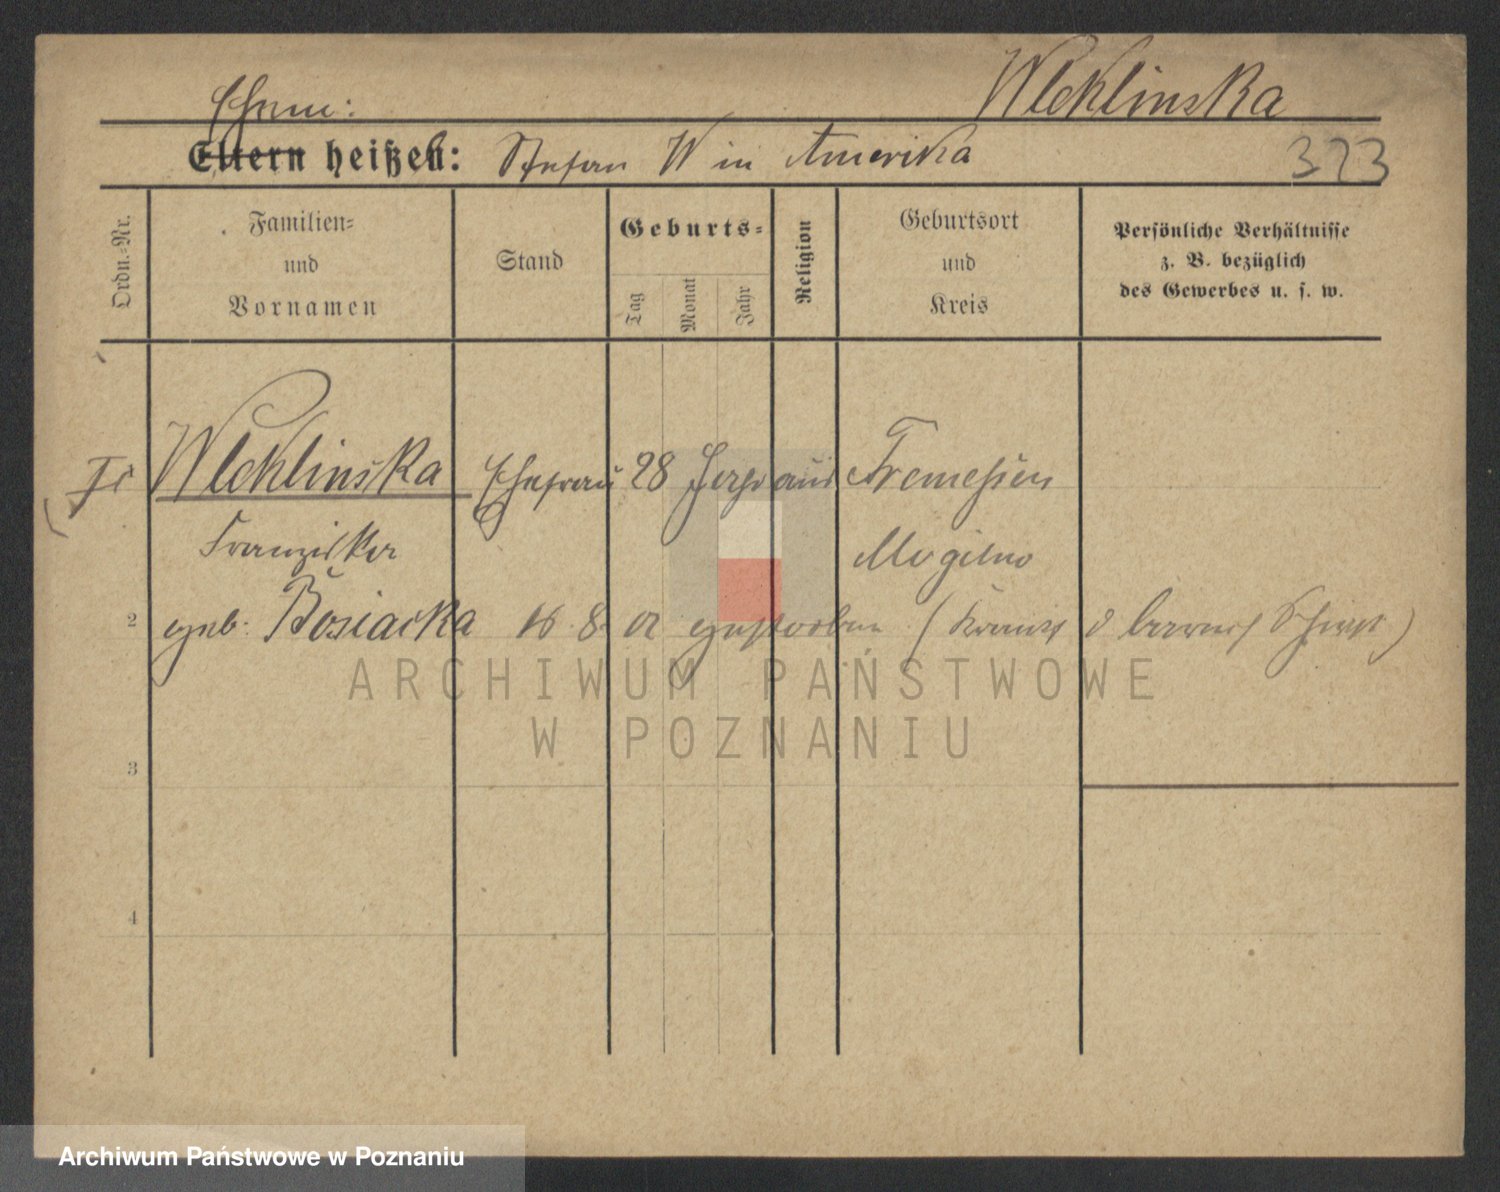 Wleklinska
Ehem:
Eltern heißen: Stefan W in Amerika
373
Ordn.-Nr.
Familien-
und
Vornamen
Stand
Geburts-
Tag
Monat
Jahr
Religion
Geburtsort
und
Kreis
Persönliche Verhältnisse
z. B. bezüglich
des Gewerbes u. s. w.
Wleklinska Ehefrau 28 Jahr aus Tremessen
Franziska Mogilno
2 geb. Bosiacka 16. 8. 01 gestorben
ARCHIWUM PAŃSTWOWE
W POZNANIU
3
4
Archiwum Państwowe w Poznaniu